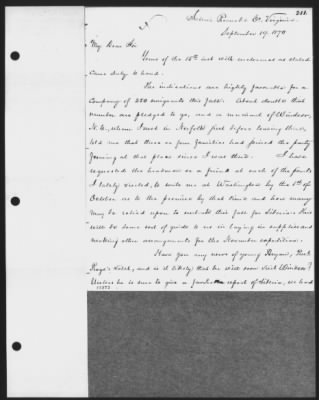 211.
Sulphur Springs &c. Virginia.
September 19, 1870
My Dear Sir
Yours of the 15th inst with enclosures as stated
came duly to hand.
The indications are highly favorable for a
Company of 250 emigrants this fall. About double that
number are pledged to go, and a rev. friend of Windsor,
N. C., whom I met in Norfolk just before leaving there,
told me that three or four families had joined the party
forming at that place since I was there. I have
requested the headman or a friend at each of the points
I lately visited, to write me at Washington by the 1st of
October as to the promise by that time and how many
may be relied upon to embark this fall for Liberia. This
will be some sort of guide to us in laying in supplies and
making other arrangements for the November expedition.
Have you any news of young Bryant, Port
Royal, and is it likely that he will soon visit Windsor?
Unless he is sure to give a favorable report of Liberia, we had